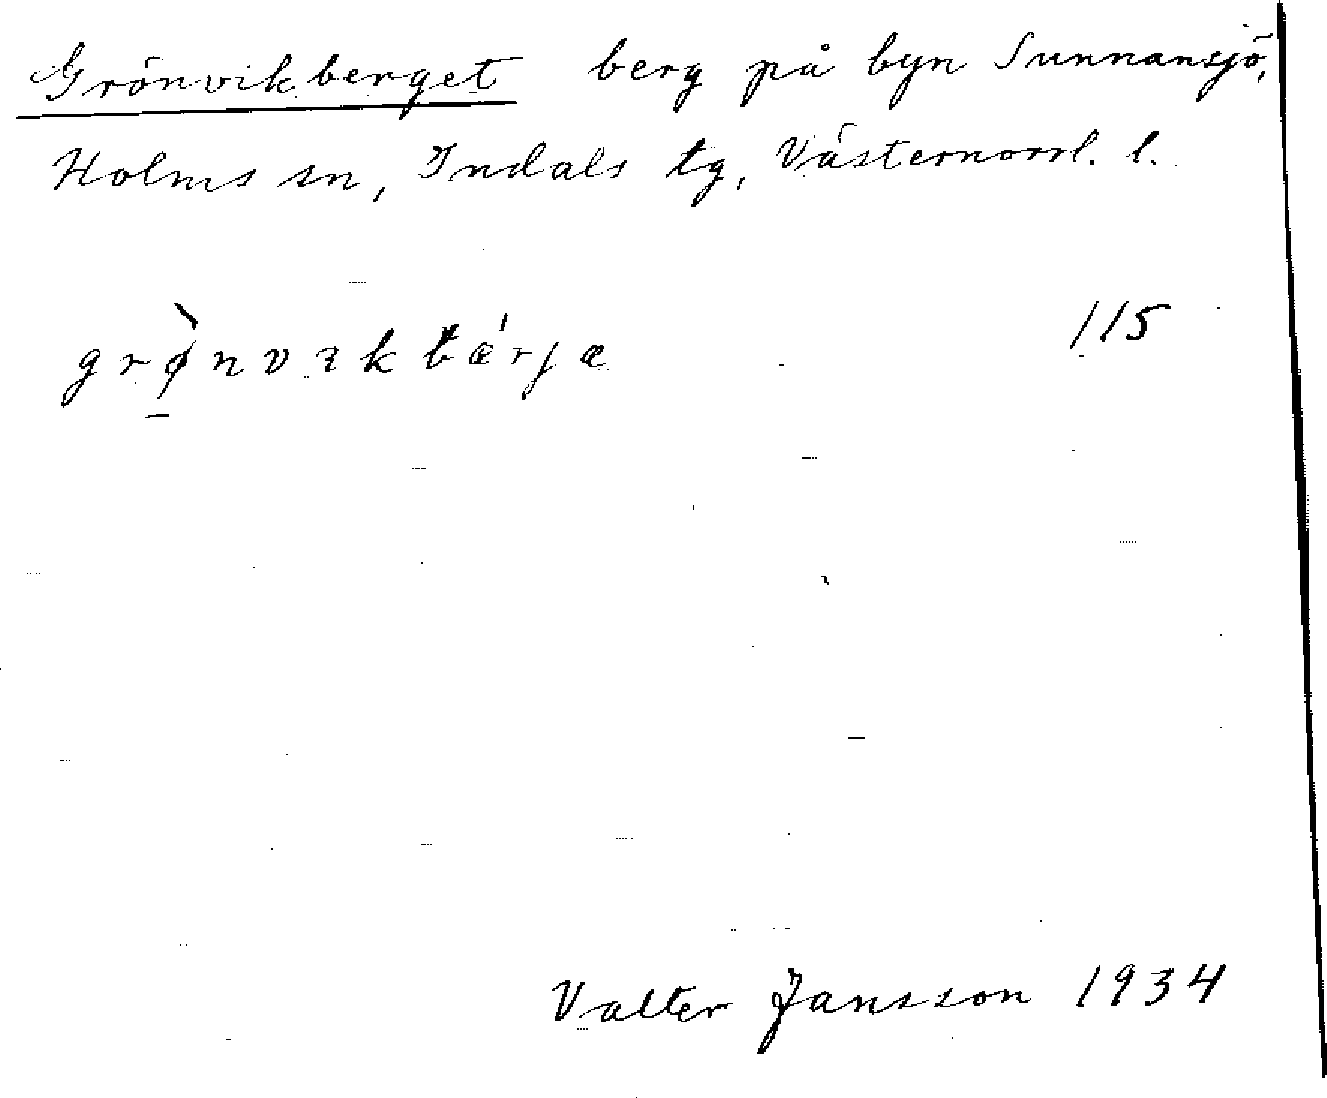 Grönvikberget berg på byn Sunnansjö,
Holms sn, Indals tg, Västernorrl. l.
grø̀nvıkbǽrjæ 115
Valter Jansson 1934